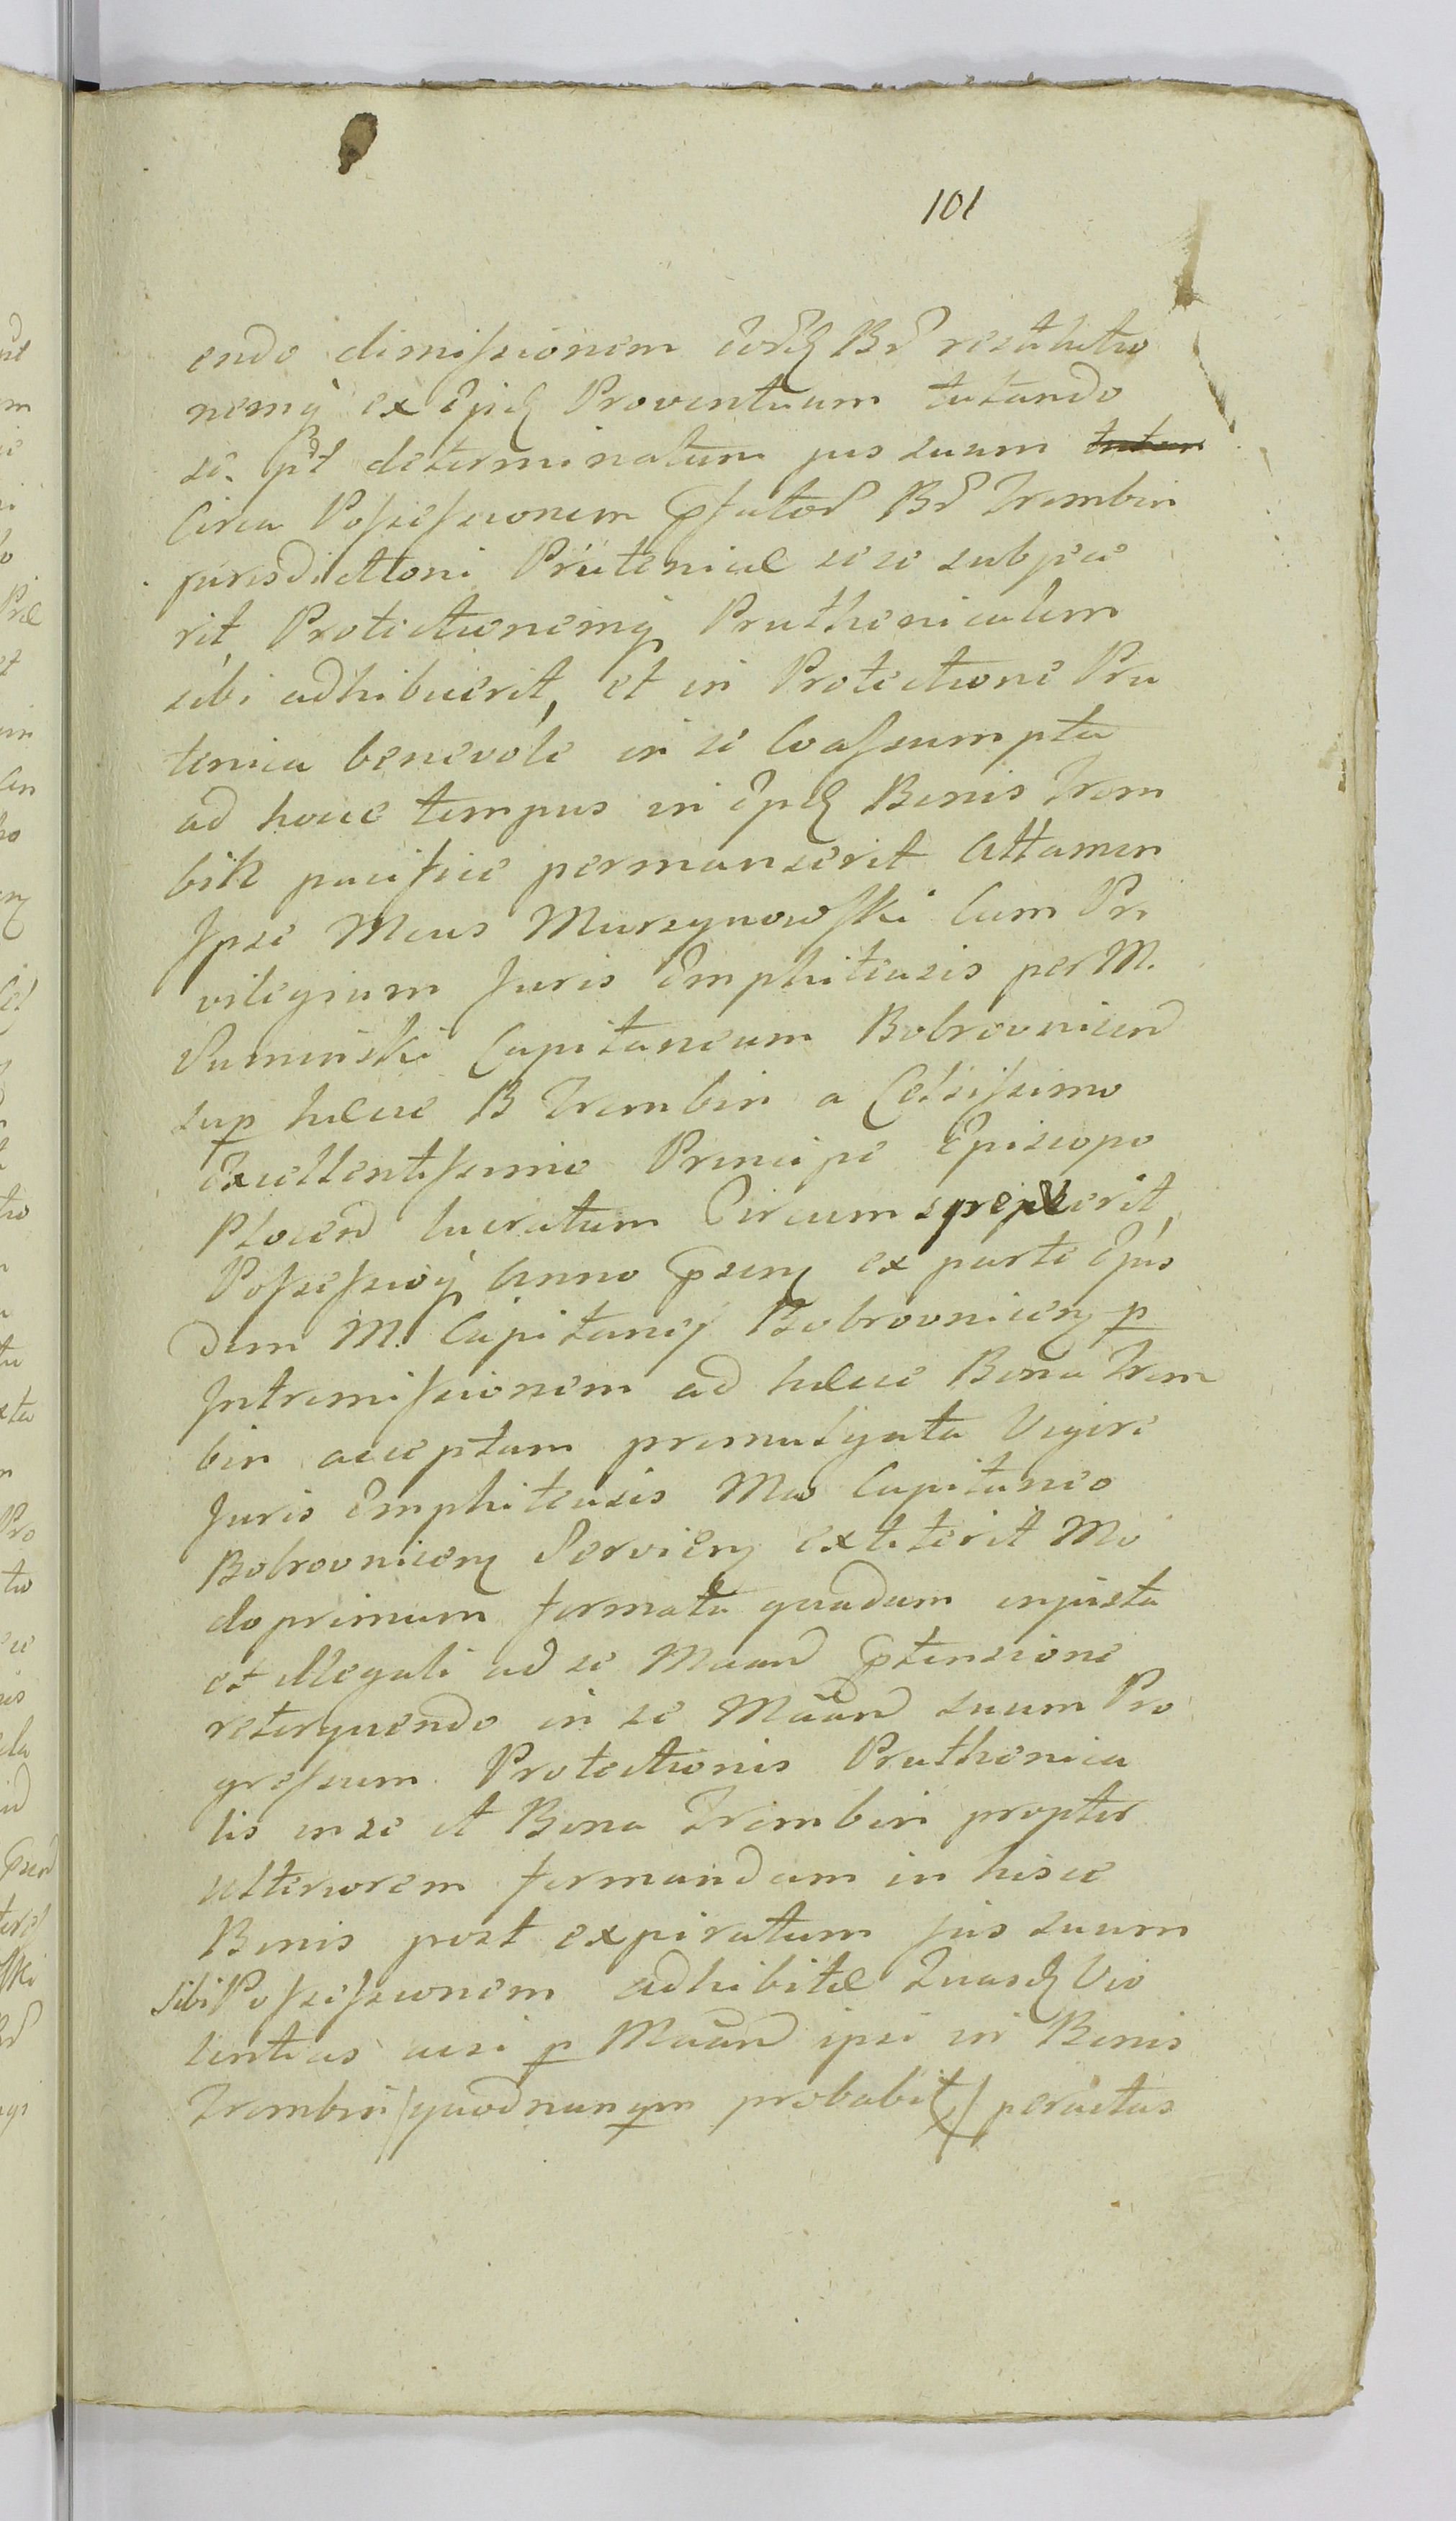 101
endo dimissionem Br̄ restitutio
nemq̨ ex Proventuum tutando
se. determinatum jus suum tutan
Circa Possessionem Br̄ Trembin
jurisdictioni Prutenicæ sese subjece
rit, Protectionemq̨ Pruthenicalem
sibi adhibuerit, et in Protectione Pru
tenica benevole in se Coassumpta
ad hocce tempus in Bonis Trem
bin pacifice permanserit Attamen
Ipse Mcus Murzynowski Cum Pri
vilegium Juris Emphiteusis per M.
Suminski Capitaneum Bobrovnicen̄
sup hæcce B Trembin a Celsissimo
Excellentissimo Principe Episcopo
Plocen̄ lucratum Circumspexerit,
Possessioq̨ Anno ex parte Ejus
dem M. Capitanei Bobrovnicen̨ p
Intromissionem ad hæcce Bona Trem
bin acceptam promulgata Vigore
Juris Emphiteusis Mco Capitaneo
Bobrovnicen̨ Servien̨ extiterit Mo
do primum formata quadam injusta
et illegali ad se ptensione
retorquendo in se suum Pro
gressum Protectionis Pruthenica
lis in se et Bona Trembin propter
ulteriorem formandam in hisce
Bonis post expiratum jus suum
sibi Possessionem adhibitæ Vio
lentias acsi p ipsi in Bonis
Trembin /quod nunqm probabit/ peractas